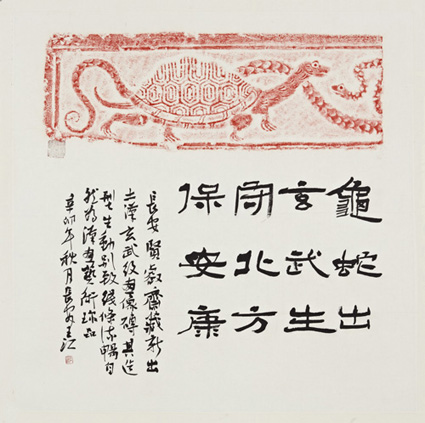 龜蛇出
玄武生
守北方
保安康
長安賢叡齋藏新出
土漢玄武紋畫像磚其造
型生動別致綫條流暢自
然為漢畫藝術珍品
辛卯年秋月長安王江